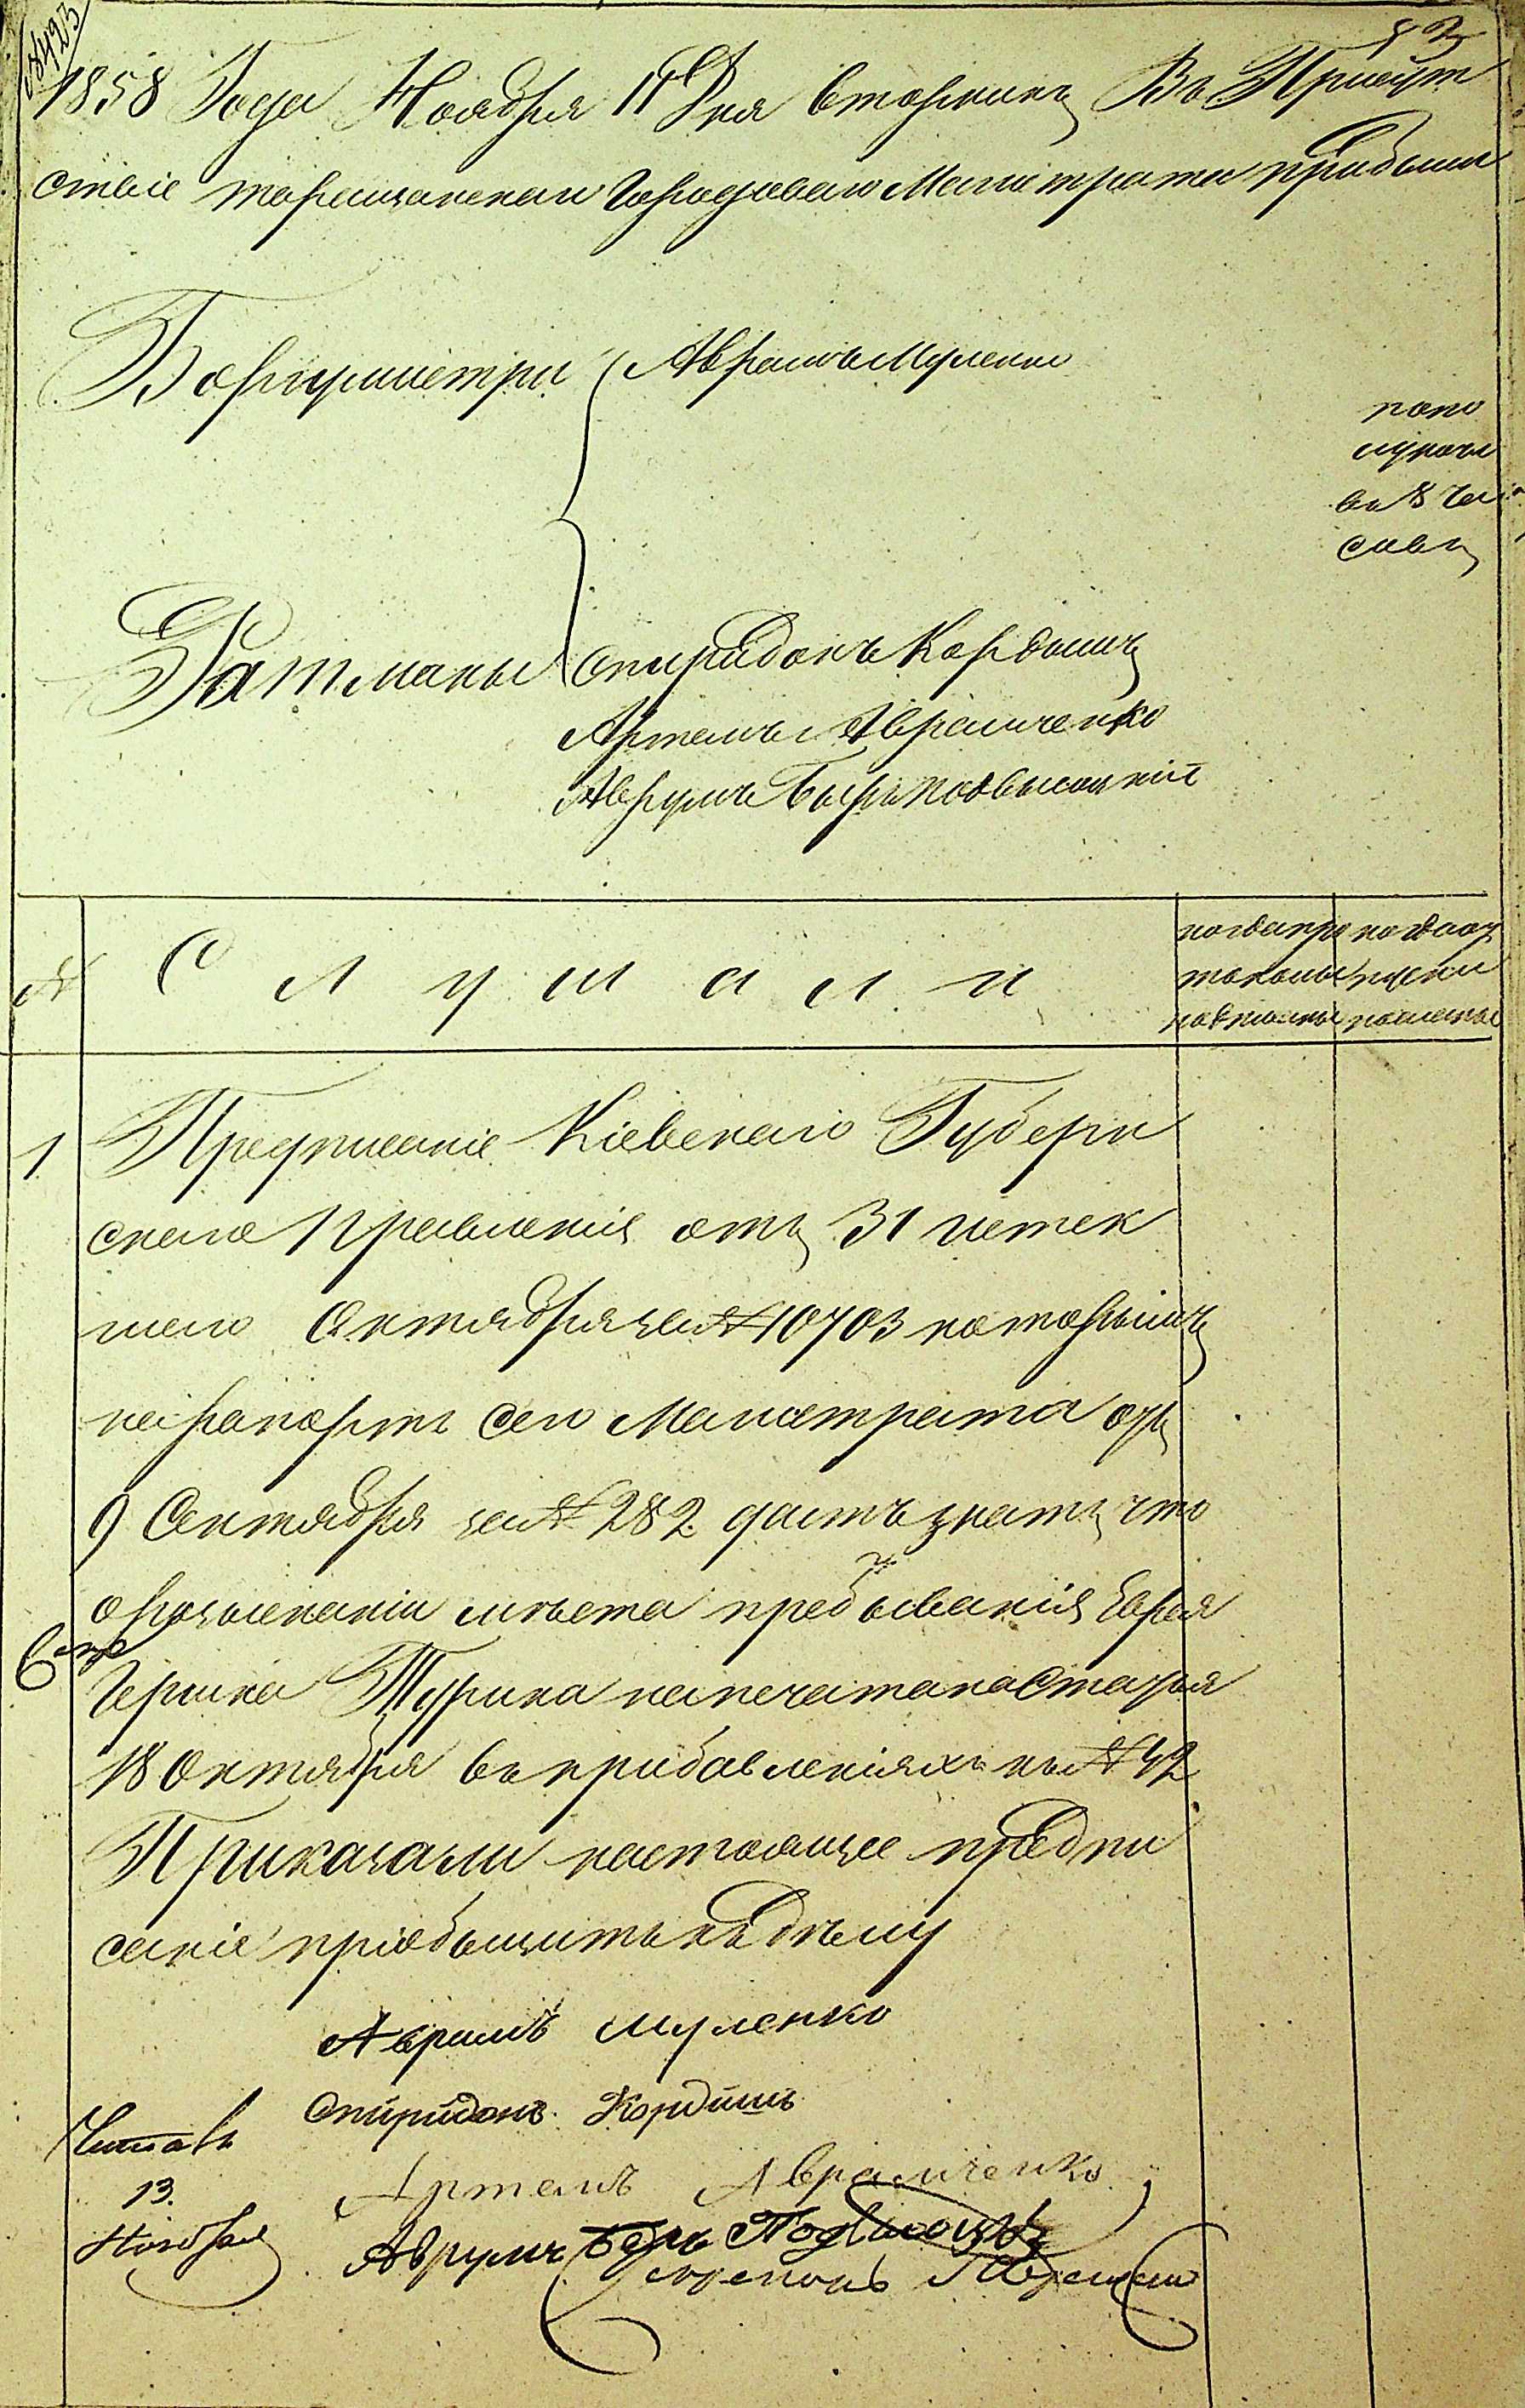 1858 Года Ноября 11 Дня вторникъ Въ Присут
ствіе таращанскаго Городоваго Магистрата прибыли
Бюргермистри Аврамъ Муленко
Ратманы Спиридонъ Кордышъ
Артемъ Аврамченко
Аврумъ Беръ Подвысоцкій
пополу
ночи
въ 8 ча
совъ
№ Слушали
когда про
токолы
подписаны
когда от
пуски
1 Предписаніе Кіевскаго Губерн
скаго Правленія отъ 31 истек
шаго Октября за № 10703 которымъ
на рапортъ сего Магистрата отъ
9 Сентября за № 282 даетъ знать что
о розысканіи мѣста пребыванія Еврея
Гершка Турика напечатана Статья
18 Октября въ прибавленіяхъ къ № 42
Приказали настоящее предпи
саніе пріобщить къ дѣлу
Аврамъ Муленко
Спиридонъ Кордишъ
Артемъ Аврамченко
Аврумъ Беръ Подвысоцкій
Читалъ
13
Ноября